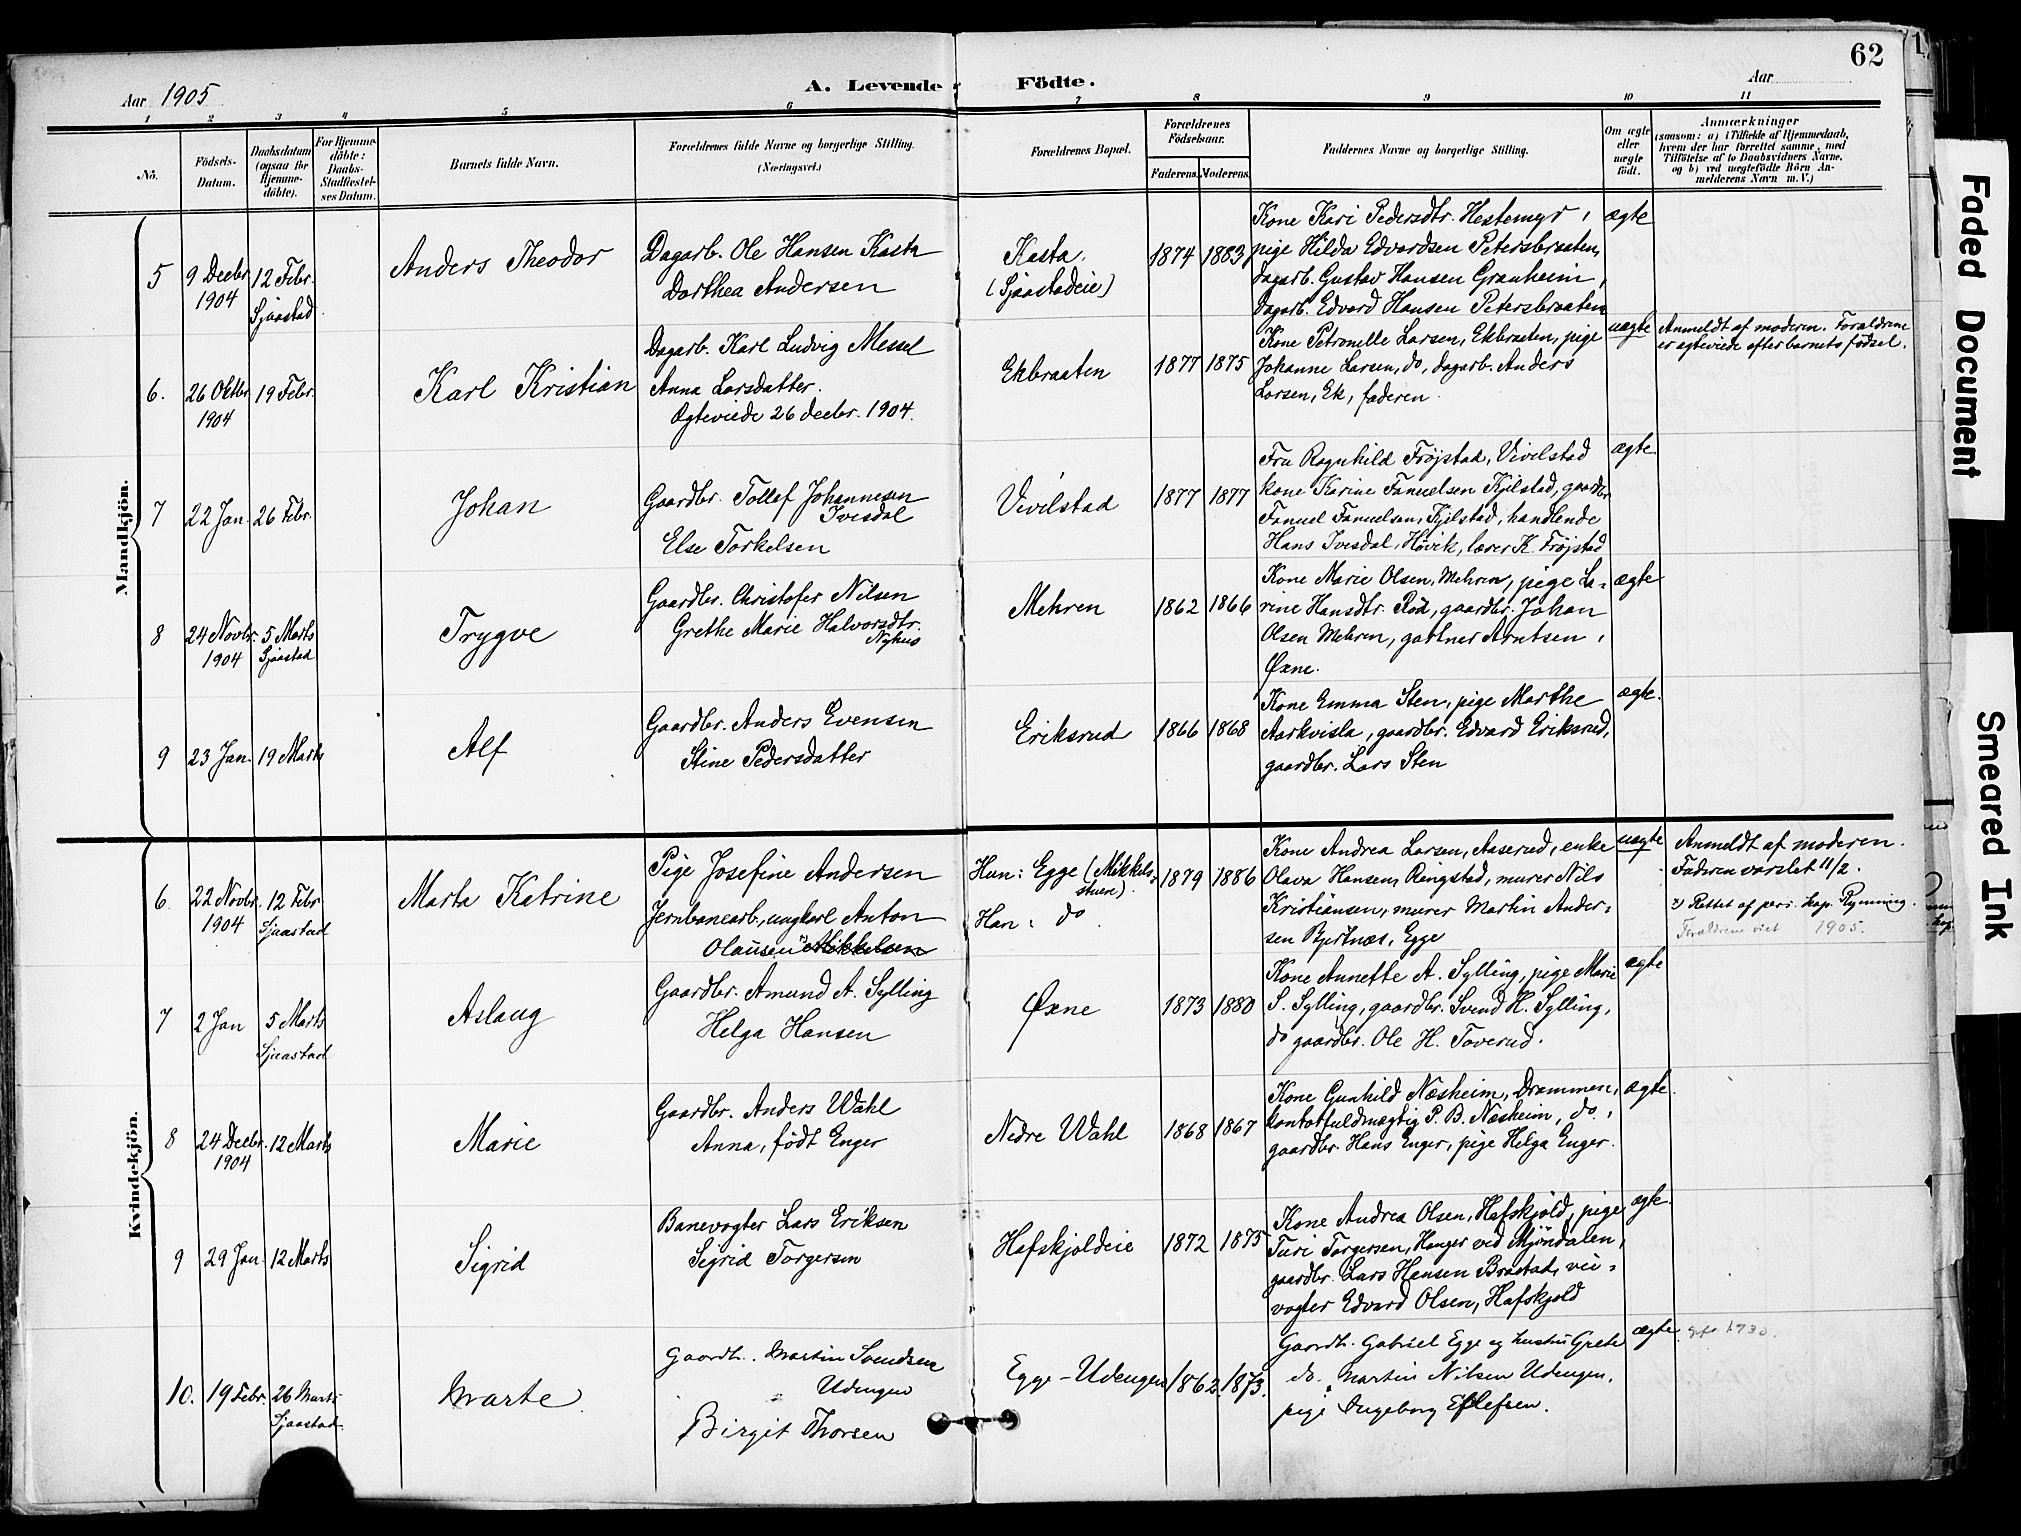 62
Aar 1905
A. Levende Födte.
Aar
1 2 3 4 5 6 7 8 9 10 11
No.
Födsels-
Datum.
Daabsdatum
(ogsaa for
Hjemme-
döbte).
For Hjemme-
döbte:
Daabs-
Stadfæstel-
ses Datum.
Barnets fulde Navn.
Forældrenes fulde Navne og borgerlige Stilling.
(Næringsvei.)
Forældrenes Bopæl.
Forældrenes
Födselsaar.
Faderens. Moderens.
Faddernes Navne og borgerlige Stilling.
Om ægte
eller
uægte
födt.
Anmærkninger
(saasom: a) i Tilfælde af Hjemmedaab,
hvem der har forrettet samme, med
Tilföielse af to Daabsvidners Navne,
og b) ved uægtefödte Börn An-
melderens Navn m. V.)
Mandkjön.
5
9 Decbr.
1904
12 Febr.
Sjaastad
Anders Theodor
Dagarb. Ole Hansen Kasta
Dorthea Andersen
Kasta.
(Sjaastadeie)
1874
1883
Kone Kari Pedersdtr. Hestemyr,
pige Hilda Edvardsen Petersbraaten,
dagarb. Gustav Hansen Granheim,
Dagarb. Edvard Hansen Petersbraaten
ægte
6.
26 Oktbr.
1904
19 Febr.
Karl Kristian
Dagarb. Karl Ludvig Messel
Anna Larsdatter.
Ægteviede 26 decbr. 1904.
Ekbraaten
1877
1875
Kone Petronelle Larsen, Ekbraaten, pige
Johanne Larsen, do, dagarb. Anders
Larsen, Ek, faderen.
uægte
Anmeldt af moderen. Forældrene
er ægteviede efter barnets födsel.
7
22 Jan.
26 Febr.
Johan
Gaardbr. Tollef Johannesen
Ivesdal
Else Torkelsen
Vivilstad
1877
1877
Fru Ragnhild Frøjstad, Vivilstad
kone Karine Fanuelsen Kjilstad, gaardbr
Fanuel Fanuelsen, Kjilstad, handlende
Hans Ivesdal, Høvik, lærer K. Frøjstad
ægte
8
24 Novbr.
1904
5 Marts
Sjaastad
Trygve
Gaardbr. Christofer Nilsen
Grethe Marie Halvorsdtr.
Nyhus
Mehren
1862
1866
Kone Marie Olsen, Mehren, pige La-
rine Hansdtr. Rød, gaardbr. Johan
Olsen Mehren, gartner Arntsen,
Øxne.
ægte
9
23 Jan.
19 Marts
Alf
Gaardbr. Anders Evensen
Stine Pedersdatter
Eriksrud
1866
1868
Kone Emma Sten, pige Marthe
Aarkvisla, gaardbr. Edvard Eriksrud,
gaardbr. Lars Sten
ægte.
Kvindekjön.
6.
22 Novbr.
1904
12 Febr
Sjaastad
Marta Katrine
Pige Josefine Andersen
Jernbanearb., ungkarl Anton
Olausen Mikkelsen
Hun: Egge (Mikkels-
stuen).
Han: do
1879
1886
Kone Andrea Larsen, Aaserud, enke
Olava Hansen, Rengstad, murer Nils
Kristiansen, murer Martin Ander-
sen Bjertnæs, Egge
uægte
Anmeldt af moderen.
Faderen varslet 11/2.
Rettet af pers. kap. Rynning.
Forældrene viet 1905.
7
2 Jan
5 Marts
Sjaastad
Aslaug
Gaardbr. Amund A. Sylling
Helga Hansen
Øxne
1873
1880
Kone Annette A. Sylling, pige Marie
S. Sylling, gaardbr. Svend H. Sylling,
do gaardbr. Ole H. Toverud.
ægte
8
24 Decbr.
1904
12 Marts
Marie
Gaardbr. Anders Wahl
Anna, født Enger
Nedre Wahl
1868
1867
Kone Gunhild Næsheim, Drammen,
kontorfuldmægtig P. B. Næsheim, do,
gaardbr. Hans Enger, pige Helga Enger.
ægte.
9
29 Jan
12 Marts
Sigrid
Banevogter Lars Eriksen
Sigrid Torgersen
Hafskjoldeie
1872
1875
Kone Andrea Olsen, Hafskjold, pige
Turi Torgersen, Hanger ved Mjøndalen,
gaardbr. Lars Hansen Brastad, vei-
vogter Edvard Olsen, Hafskjold
ægte.
10.
19 Febr.
26 Marts
Sjaastad.
Marte
Gaardb. Martin Svendsen
Udengen
Birgit Thorsen
Egge-Udengen
1862.
1873.
Gaardb. Gabriel Egge og hustru Grete
do. Martin Nilsen Udengen,
pige Ingeborg Ellefsen.
ægte.
Faded Document
Smeared Ink